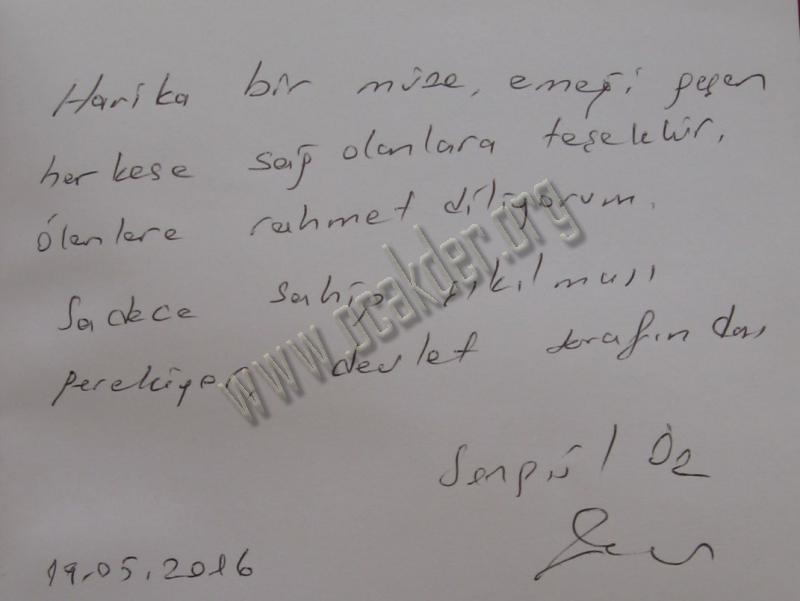 Harika bir müze, emeği geçen
herkese sağ olanlara teşekkür,
ölenlere rahmet diliyorum.
Sadece sahip çıkılması
gerekiyor, devlet tarafından
Sergül Öz
19.05.2016
www.ocakder.org